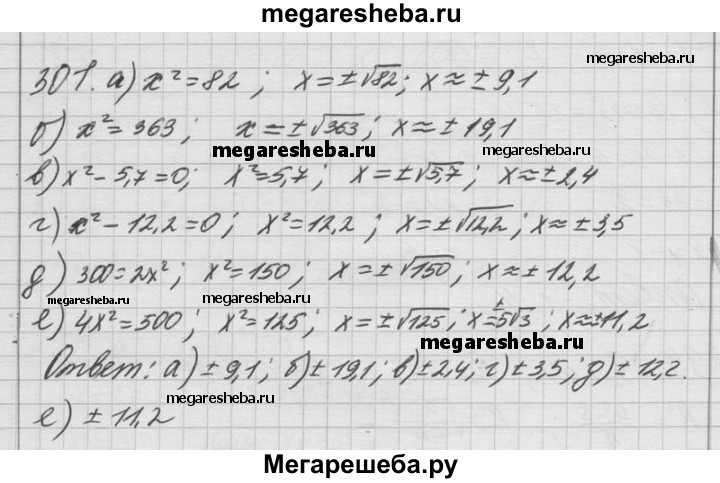 megaresheba.ru
301. а) x² = 82 ; x = ±√82 ; x ≈ ± 9,1
megaresheba.ru
б) x² = 363 ; x = ±√363 ; x ≈ ± 19,1
megaresheba.ru megaresheba.ru
в) x² - 5,7 = 0 ; x² = 5,7 ; x = ±√5,7 ; x ≈ ± 2,4
г) x² - 12,2 = 0 ; x² = 12,2 ; x = ±√12,2 ; x ≈ ± 3,5
д) 300 = 2x² ; x² = 150 ; x = ±√150 ; x ≈ ± 12,2
megaresheba.ru megaresheba.ru
е) 4x² = 500 ; x² = 125 ; x = ±√125 ; x = ±5√3 ; x ≈ ±11,2
megaresheba.ru
Ответ: а) ± 9,1 ; б) ± 19,1 ; в) ± 2,4 ; г) ± 3,5 ; д) ± 12,2.
megaresheba.ru
е) ± 11,2
Мегарешеба.ру